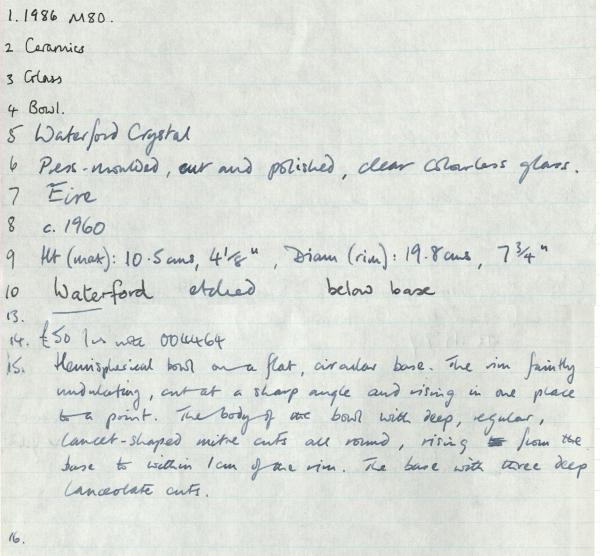 1. 1986 M80.
2 Ceramics
3 Glass
4 Bowl.
5 Waterford Crystal
6 Press-moulded, cut and polished, clear colourless glass.
7 Eire
8 c. 1960
9 Ht (max): 10.5cms, 4 1/8", Diam (rim): 19.8cms, 7 3/4"
10 Waterford etched below base
13.
14. £50 004464
15. Hemispherical bowl on a flat, circular base. The rim faintly
undulating, cut at a sharp angle and rising in one place
to a point. The body of the bowl with deep, regular,
lancet-shaped mitre cuts all round, rising from the
base to within 1cm of the rim. The base with three deep
lanceolate cuts.
16.